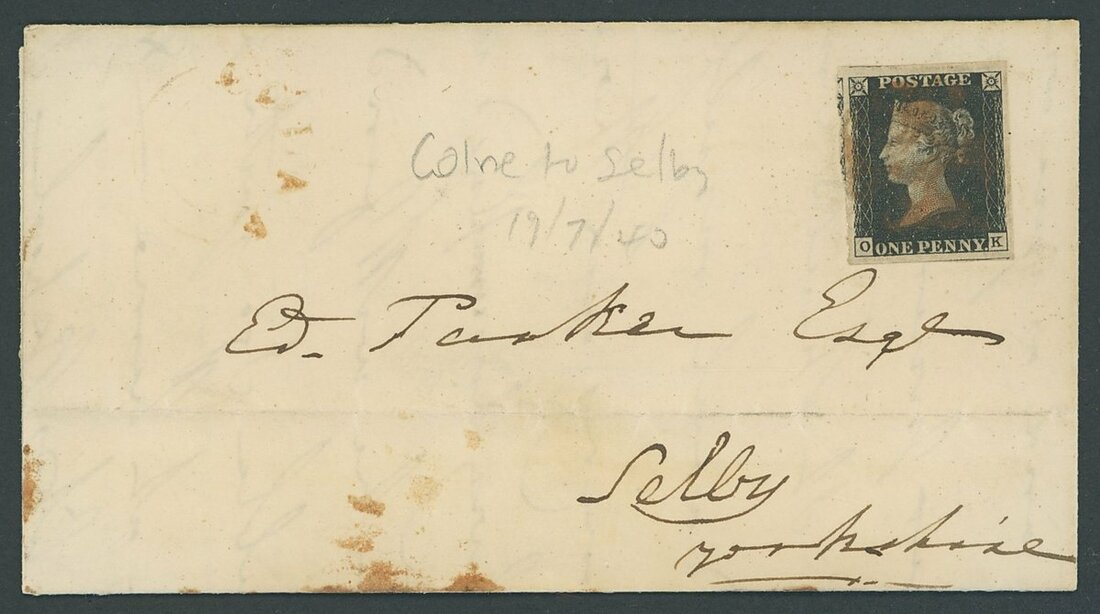 POSTAGE
O ONE PENNY K
Colne to Selby
19/7/40
Ed. Parker Esqe
Selby
Yorkshire